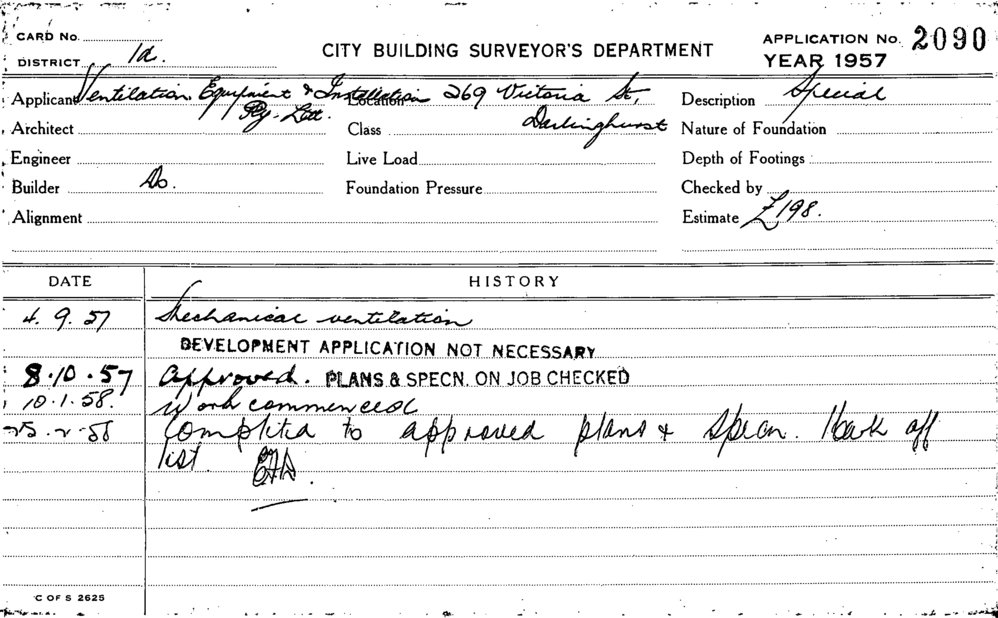 CARD No.
CITY BUILDING SURVEYOR'S DEPARTMENT
APPLICATION No. 2090
DISTRICT 1d.
YEAR 1957
Applicant Ventilation Equipment & Installation Location 269 Victoria St, Description Special
Pty. Ltd.
Architect Class Darlinghurst Nature of Foundation
Engineer Live Load Depth of Footings
Builder Do. Foundation Pressure Checked by
Alignment Estimate £198.
DATE HISTORY
4. 9. 57 Mechanical ventilation
DEVELOPMENT APPLICATION NOT NECESSARY
8.10.57 Approved. PLANS & SPECN. ON JOB CHECKED
10.1.58. Work commenced
25-2-58 Completed to approved plans & specn. Mark off
list.
C OF S 2625